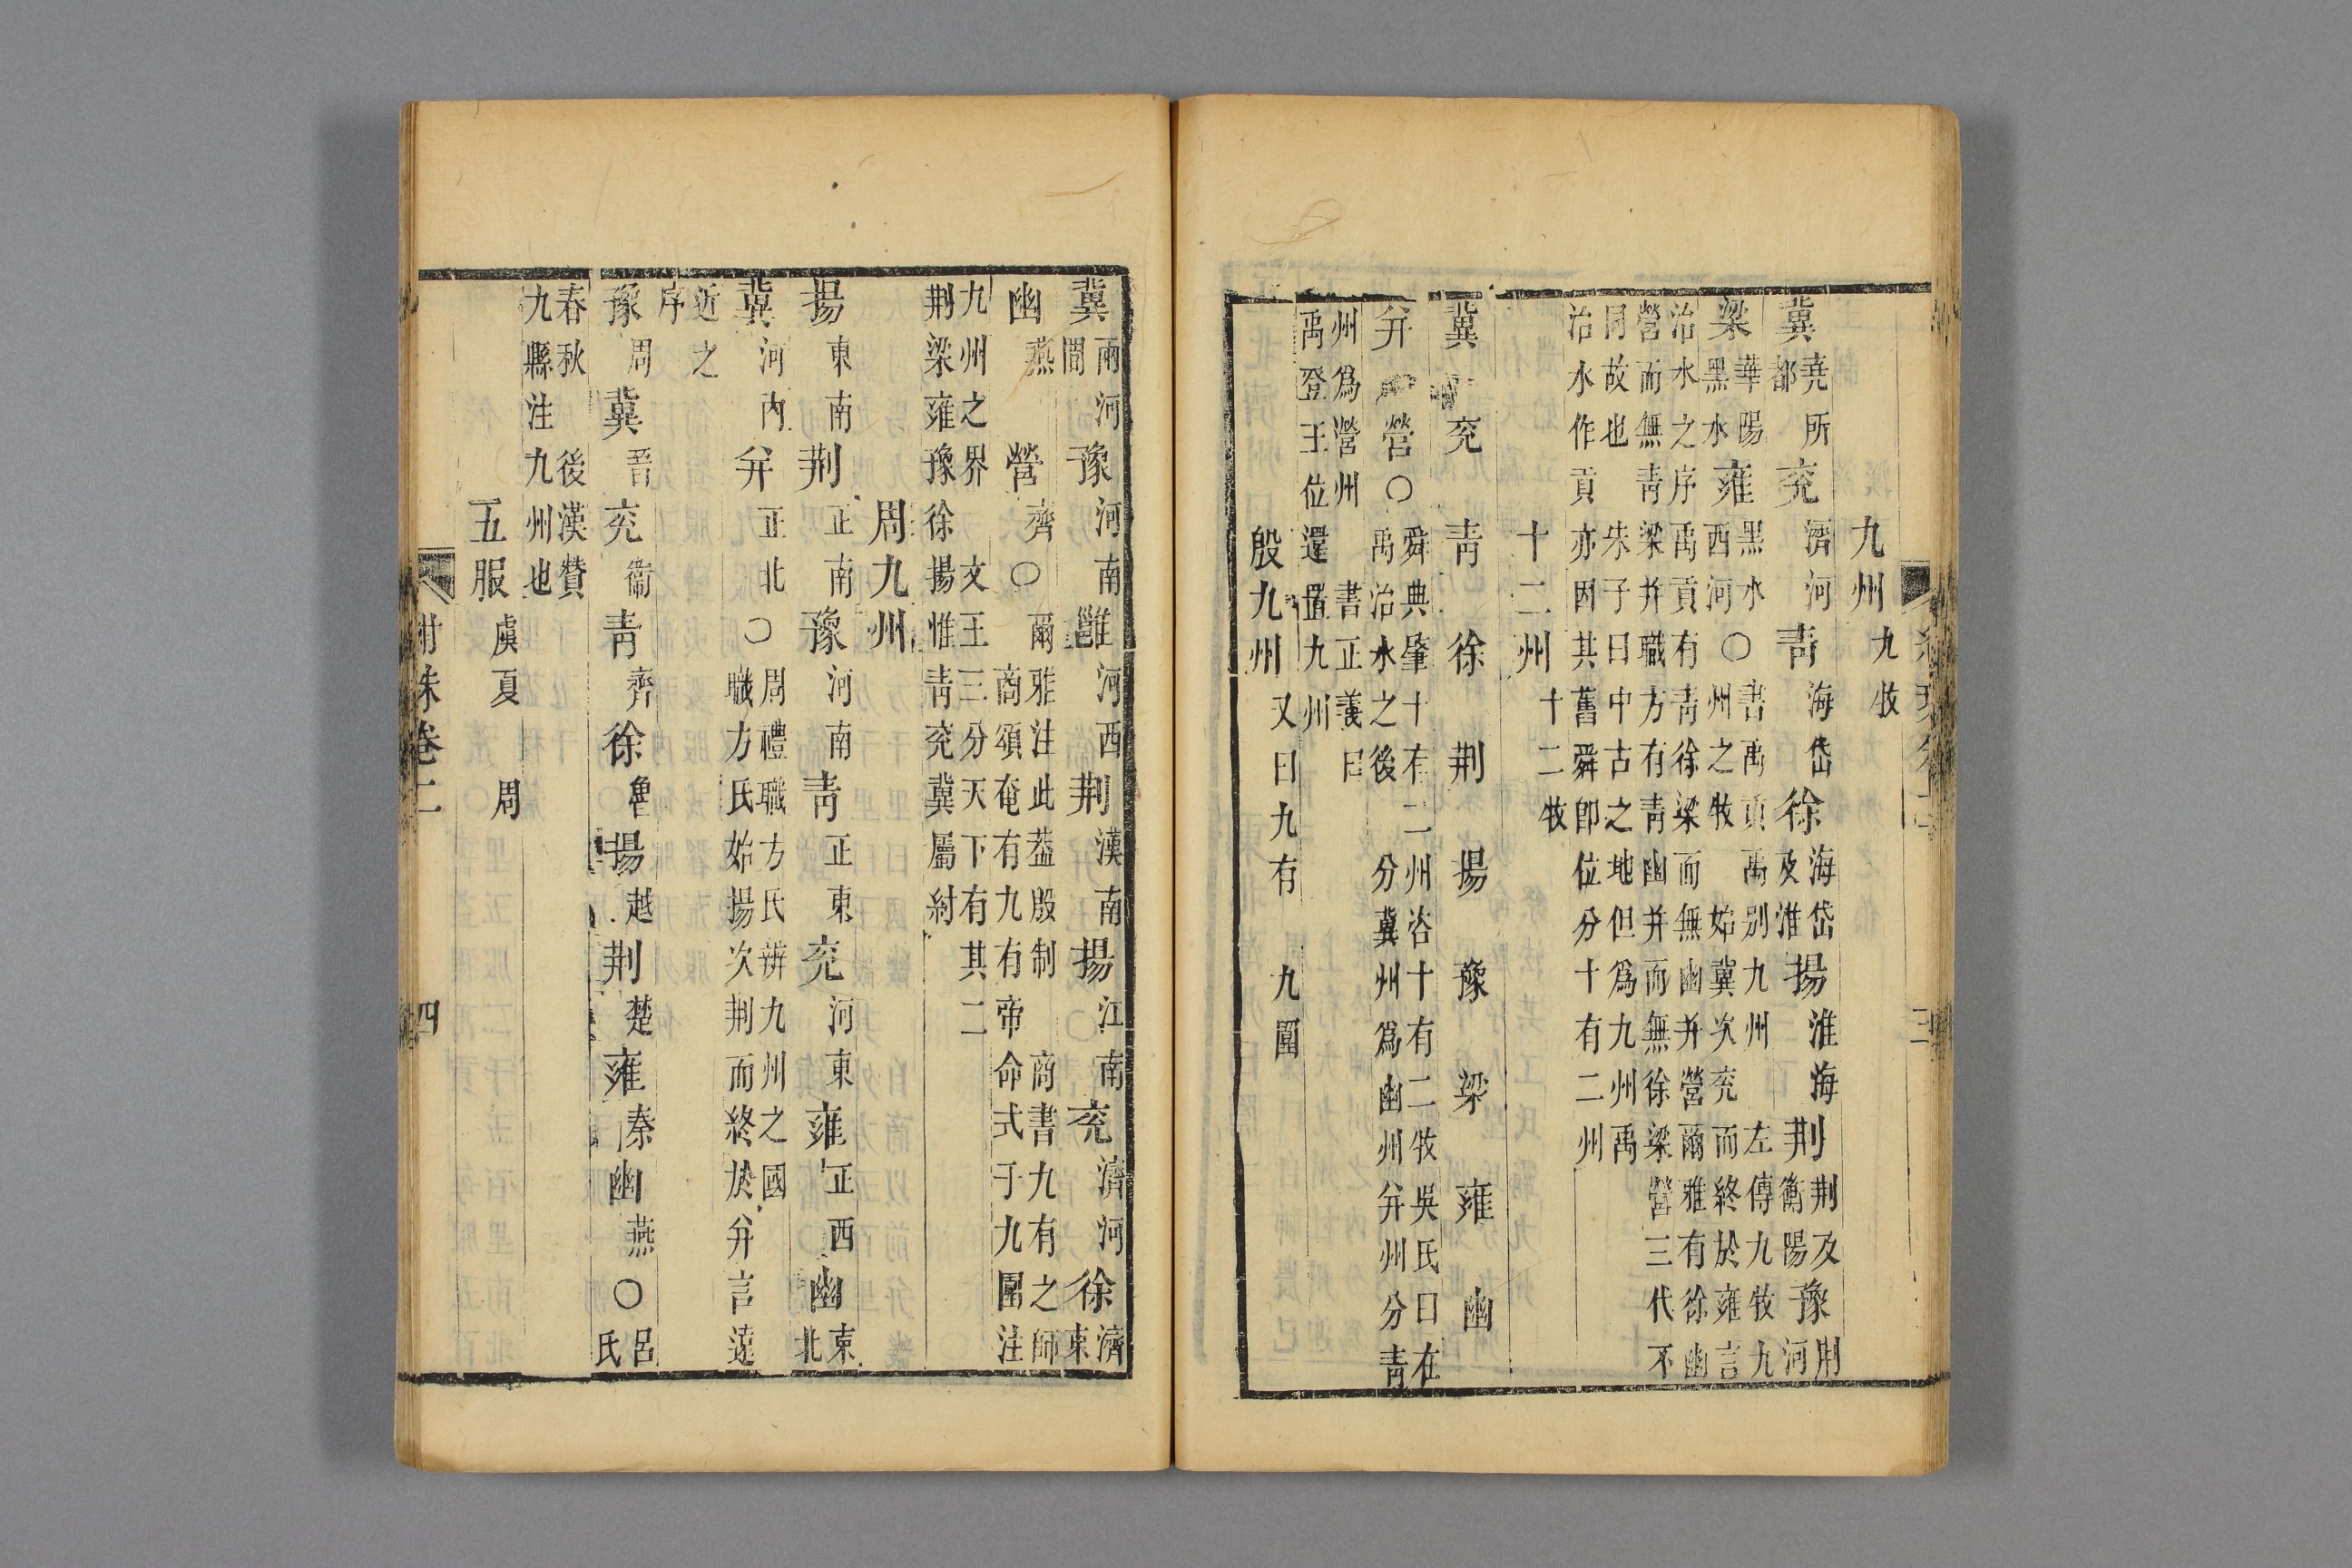 九州 九牧
冀堯所都兖濟河靑海岱徐海岱及淮揚淮海荆荆及衡陽豫荆河
梁華陽黑水雍黑水西河○書禹貢 禹別九州 左傳九牧九
州之牧 始冀次兖而終於雍言
治水之序禹貢有靑徐梁而無幽并營爾雅有徐幽
營而無靑梁并職方有靑幽并而無徐梁營三代不
同故也 朱子曰中古之地但爲九州禹
治水作貢亦因其舊舜卽位分十有二州
十二州 十二牧
冀 兖 靑 徐 荆 揚 豫 梁 雍 幽
幷 營○舜典肇十有二州咨十有二牧吳氏曰在
禹治水之後 分冀州爲幽州幷州分靑
州爲營州 書正義曰
禹登王位還置九州
殷九州 又曰九有 九圍
三
冀兩河間豫河南雝河西荆漢南揚江南兖濟河徐濟東
幽燕 營齊○爾雅注此葢殷制 商書九有之師
商頌奄有九有帝命式于九圍注
九州之界 文王三分天下有其二
荆梁雍豫徐揚惟靑兖冀屬紂
周九州
揚東南荆正南豫河南靑正東兖河東雍正西幽東北
冀河內幷正北○周禮職方氏辨九州之國
職方氏始揚次荆而終於幷言遠
近之
序
豫周冀晉兖衞靑齊徐魯揚越荆楚雍秦幽燕○呂氏
春秋 後漢贊
九縣注九州也
五服 虞夏 周
珠卷二 四